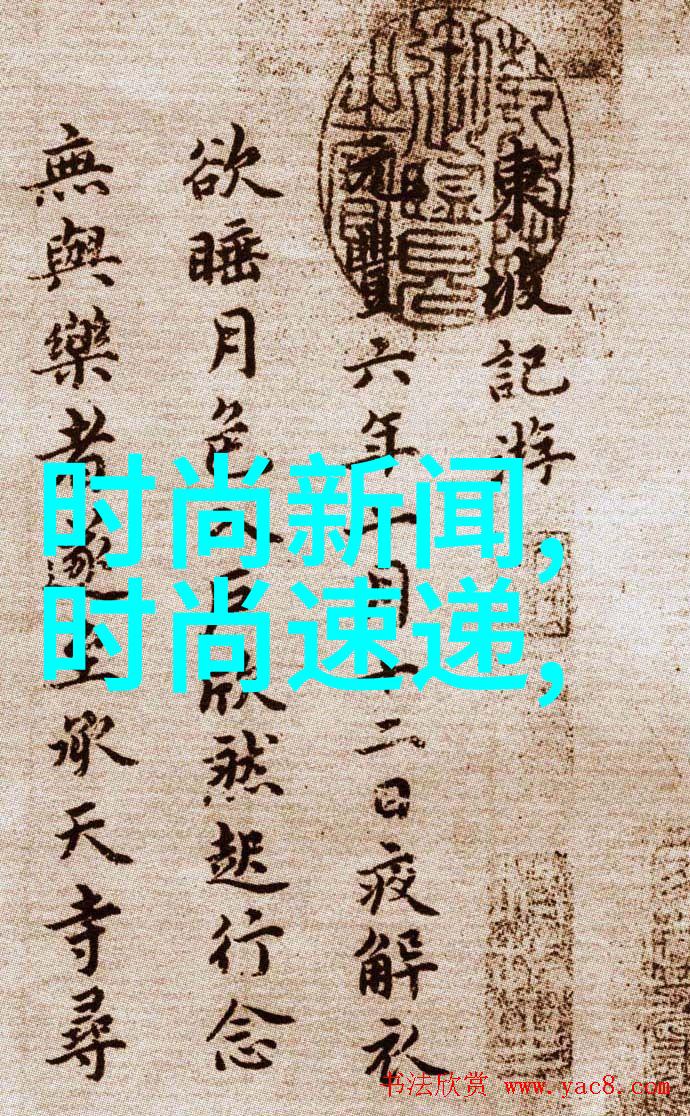 東坡記游
元豐六年十月十二日解衣
欲睡月色入戶欣然起行念
無與樂者遂至承天寺尋
时尚新闻,
时尚速递,
书法欣赏 www.yac8.com